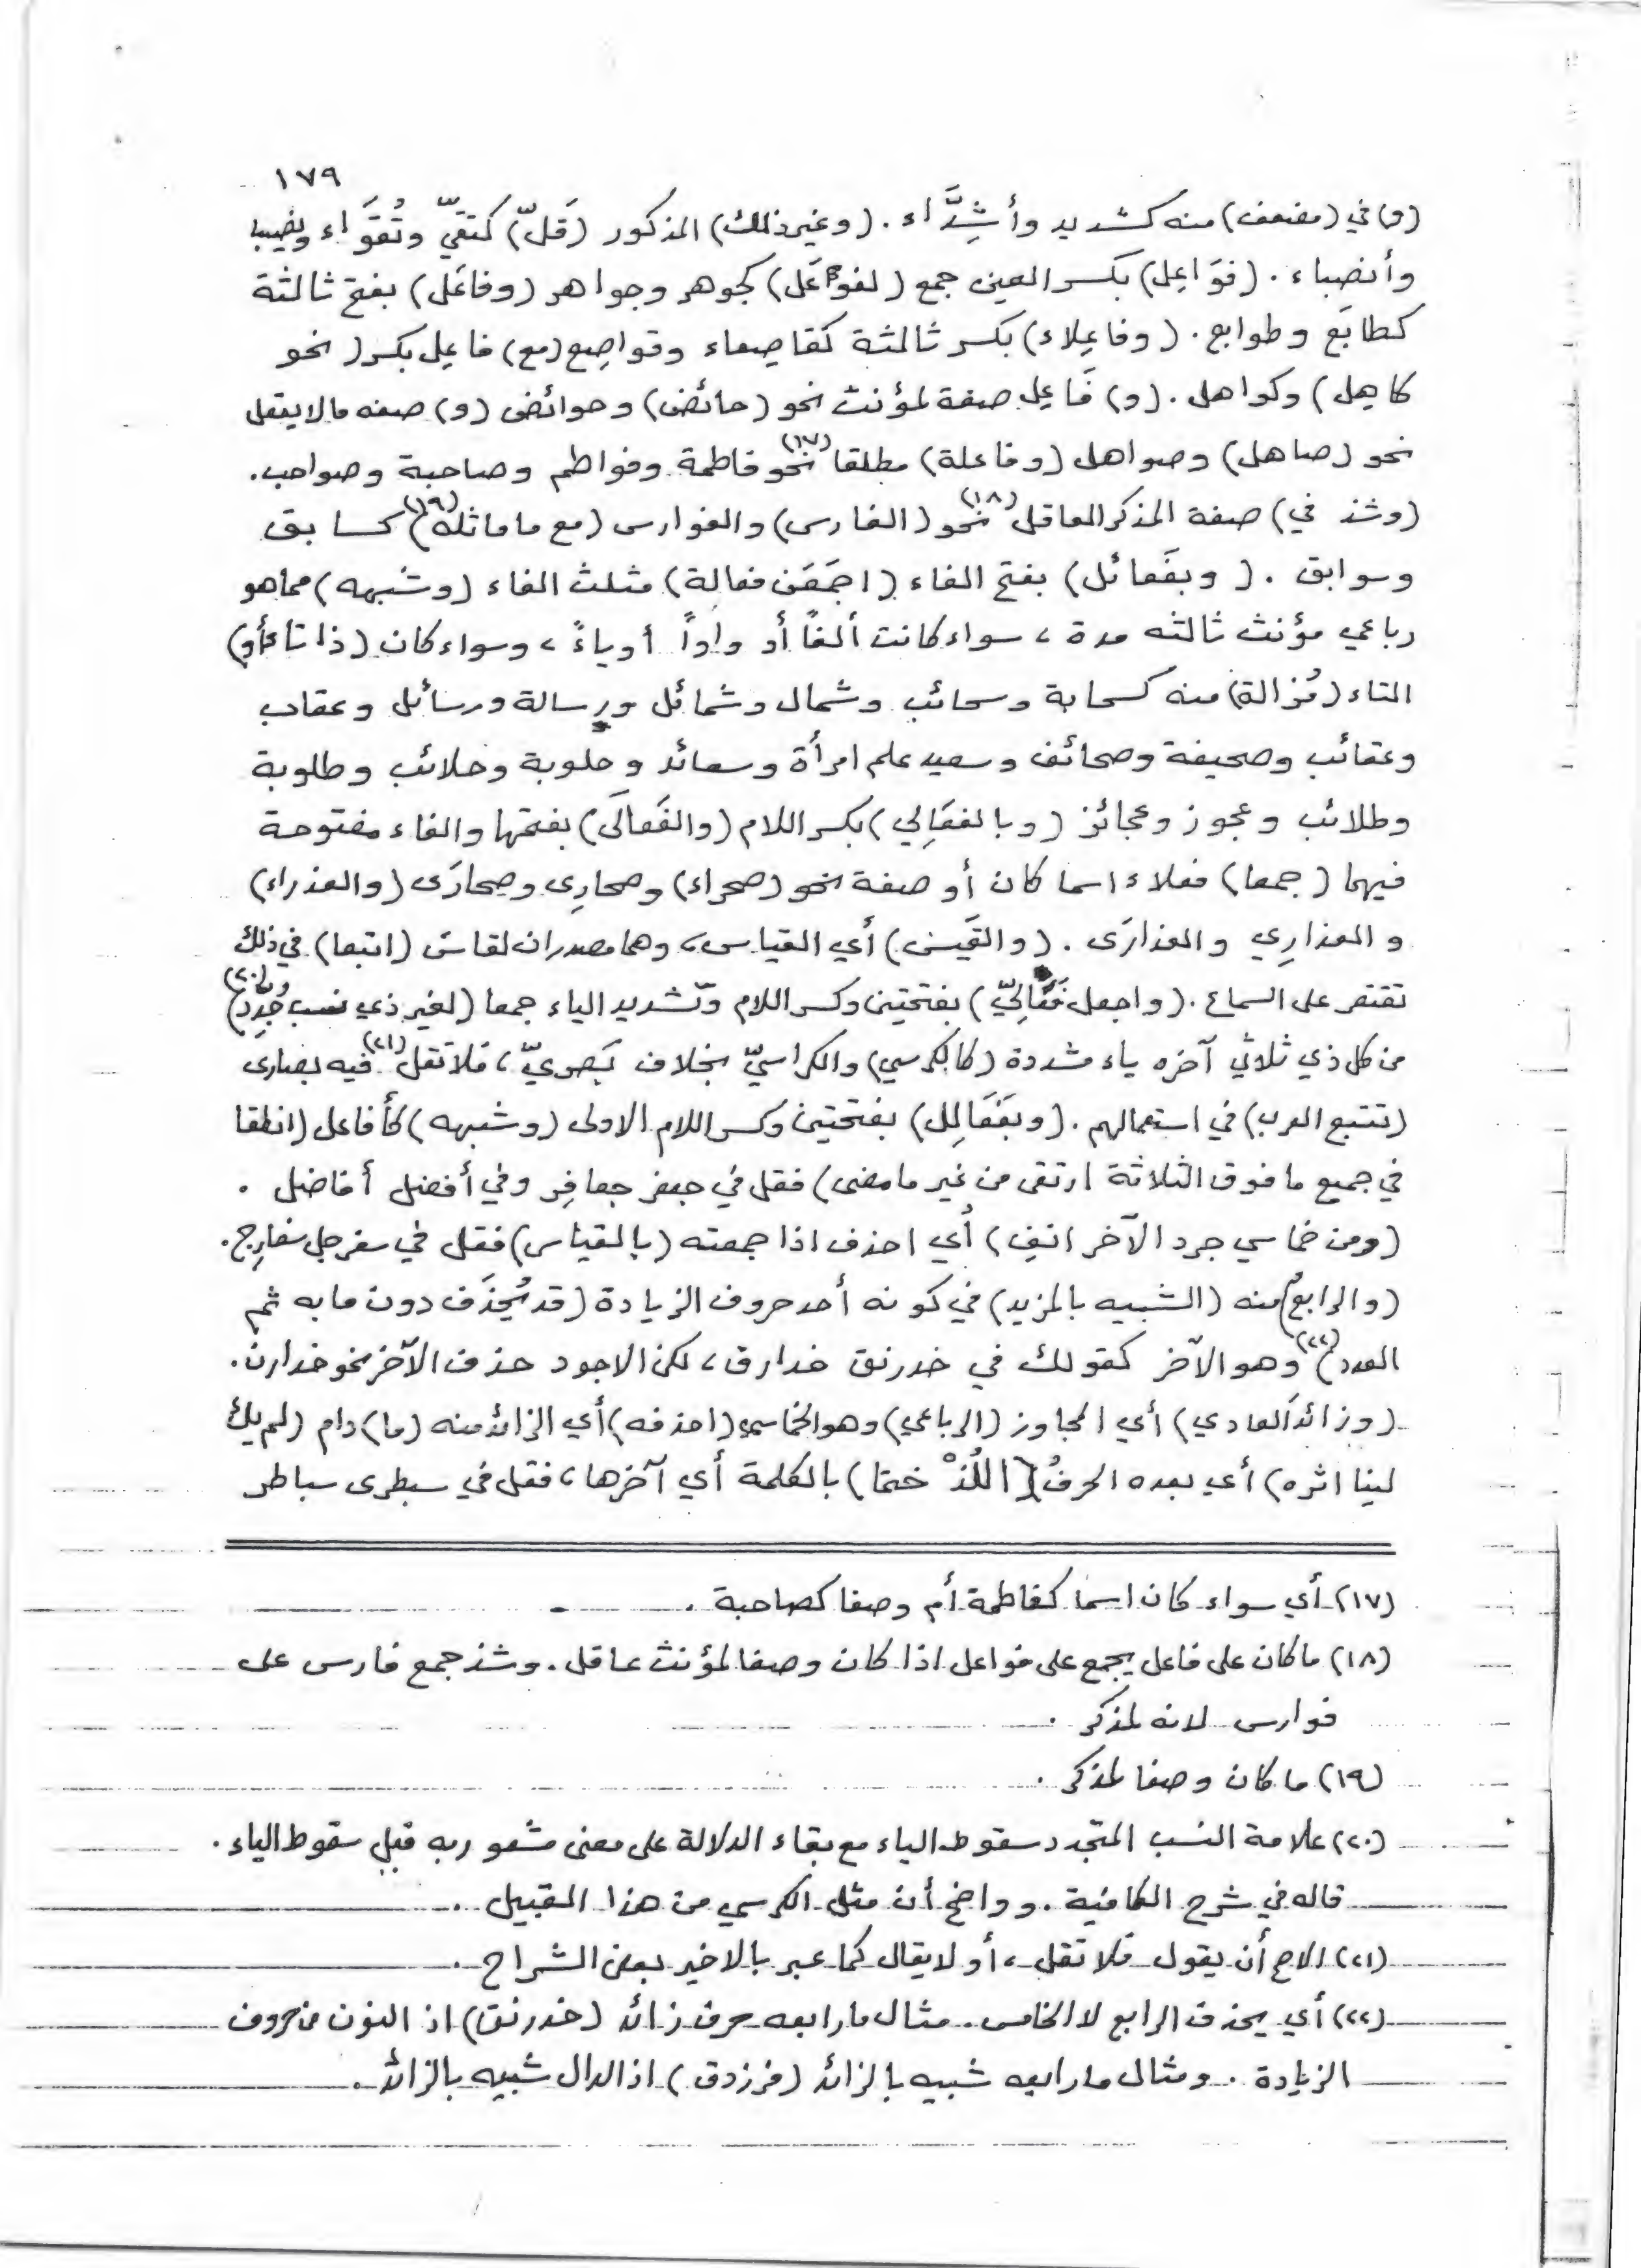 ١٧٩
(و) في (مضعف) منه كشديد وأشِدَّاء . (وغير ذلك) المذكور (قَلّ) كتقيّ وتُقَوَاء ونصيب
وأنصباء . (فوَاعِل) بكسر العين جمع (لفوعَل) كجوهر وجواهر (وفاعَل) بفتح ثالثة
كطابَع وطوابع . (وفاعِلاء) بكسر ثالثة كقاصِعاء وقواصِع (مع) فاعِل بكسر (نحو
كاهِل) وكواهل . (و) فَاعِل صفة لمؤنث نحو (حائض) وحوائض (و) صفه مالايعقل
نحو (صاهل) وصواهل (وفاعلة) مطلقا (١٧) نحو فاطمة وفواطم وصاحبة وصواحب .
(وشذ في) صفة المذكر العاقل (١٨) نحو (الفارس) والفوارس (مع ماماثله) (١٩) كسابق
وسوابق . (وبفَعائل) بفتح الفاء (اجمَعَن فعالة) مثلث الفاء (وشبهه) مماهو
رباعي مؤنث ثالثه مدة ، سواء كانت ألفاً أو واواً أوياءً ، وسواء كان (ذا تاء أو)
التاء (مُزالة) منه كسحابة وسحائب وشمال وشمائل ورسالة ورسائل وعقاب
وعقائب وصحيفة وصحائف وسعيد علم امرأة وسعائد وحلوبة وحلائب وطلوبة
وطلائب وعجوز وعجائز (وبالفعَالِي) بكسر اللام (والفَعالَى) بفتحها والفاء مفتوحة
فيهما (جمعا) فعلاء اسما كان أو صفة نحو (صحراء) وصحارِى وصحارَى (والعذراء)
والعذارِي والعذارَى . (والقَيسَ) أي القياس، وهما مصدران لقاس (اتبعا) في ذلك
تقتصر على السماع . (واجعل فَعَالِيّ) بفتحتين وكسر اللام وتشديد الياء جمعا (لغير ذي نسب جُدِّد) (٢٠)
من كل ذي ثلاثي آخره ياء مشددة (كالكرسي) والكراسيّ بخلاف بَصريّ ، فلا تقل (٢١) فيه بصارى
(تتبع العرب) في استعمالهم . (وبفَعَالِل) بفتحتين وكسر اللام الاولى (وشبهه) كأفاعل (انطقا
في جميع مافوق الثلاثة ارتقى من غير مامضى) فقل في جعفر جعافِر وفي أفضل أفاضل .
(ومن خماسي جرد الآخر انفِ) أي احذف اذا جمعته (بالقياس) فقل في سفرجل سفارِج .
(والرابعُ) منه (الشبيه بالمزيد) في كونه أحد حروف الزيادة (قد يُحذَف دون مابه تم
العدد) (٢٢) وهو الآخر كقولك في خدرنق خدارق ، لكن الاجود حذف الآخر نحو خدارن .
(وزائدَ العادي) أي المجاوز (الرباعي) وهو الخماسي (احذفه) أي الزائد منه (ما) دام (لم يك
لينا اثره) أي بعده الحرفُ (اللَّذْ ختما) بالكلمة أي آخرها ، فقل في سبطرى سباطر
(١٧) أي سواء كان اسما كفاطمة أم وصفا كصاحبة .
(١٨) ماكان على فاعل يجمع على فواعل اذا كان وصفا لمؤنث عاقل . وشذ جمع فارس على
فوارس لانه لمذكر .
(١٩) ماكان وصفا لمذكر .
(٢٠) علامة النسب المتجدد سقوط الياء مع بقاء الدلالة على معنى مشعور به قبل سقوط الياء .
قاله في شرح الكافية . وواضح أن مثل الكرسي من هذا القبيل .
(٢١) الاصح أن يقول فلا تقل ، أو لايقال كما عبر بالاخير بعض الشراح .
(٢٢) أي يحذف الرابع لا الخامس . مثال مارابعه حرف زائد (خدرنق) اذ النون من حروف
الزيادة . ومثال مارابعه شبيه بالزائد (فرزدق) اذ الدال شبيه بالزائد .